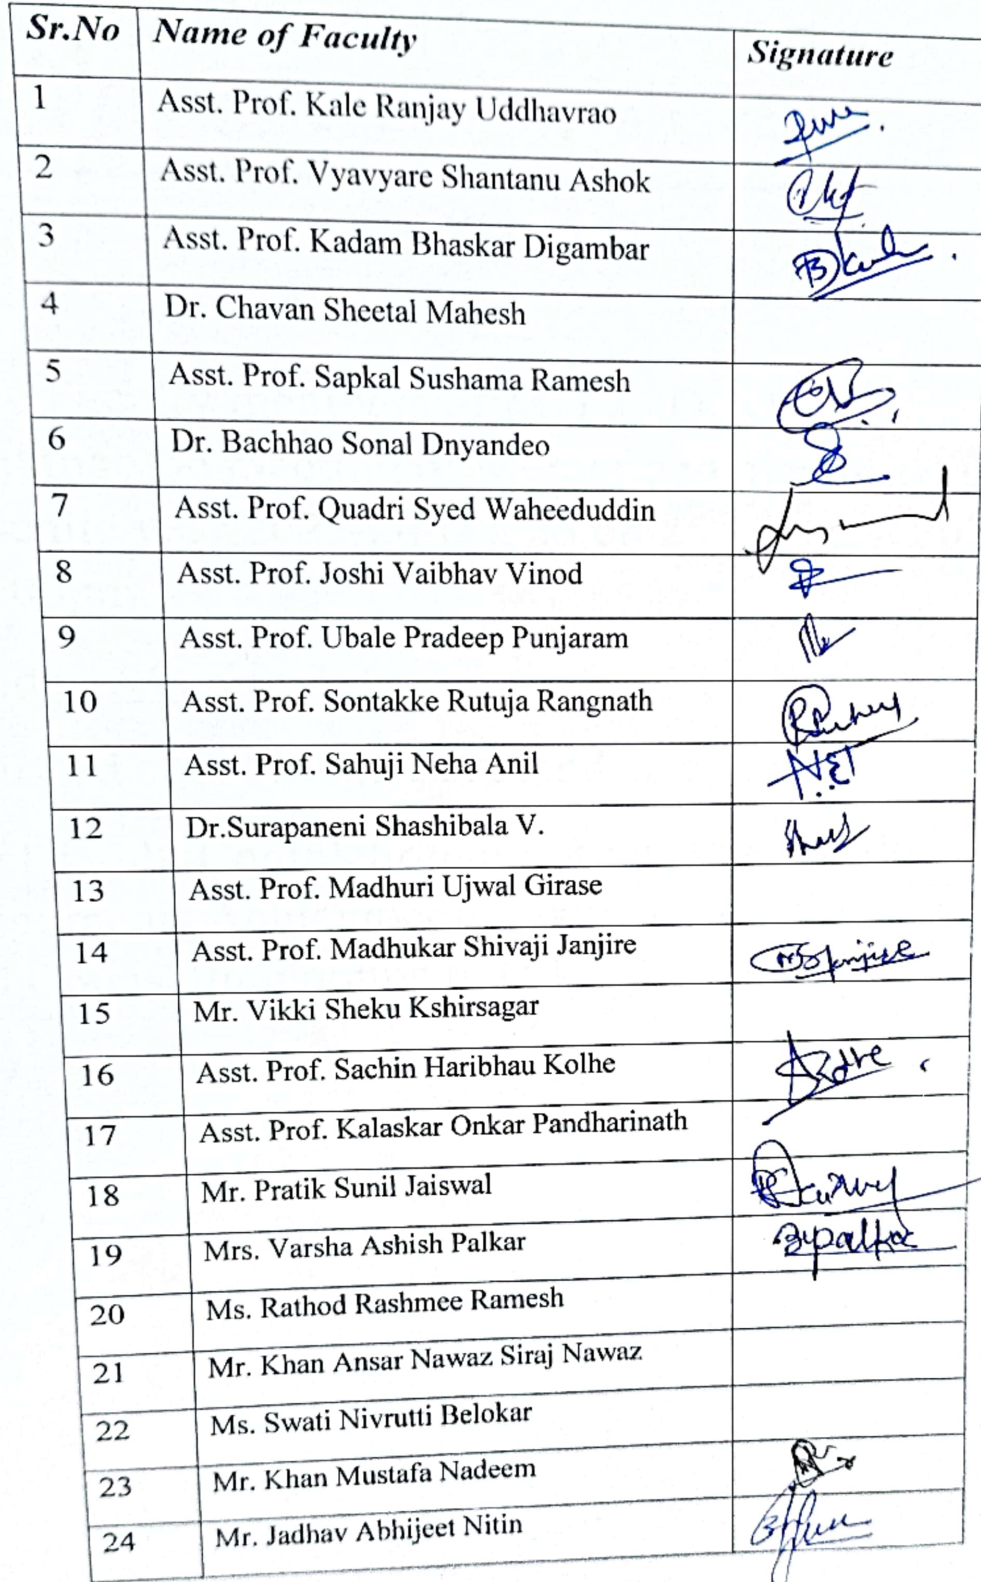 Sr.No Name of Faculty Signature
1 Asst. Prof. Kale Ranjay Uddhavrao
2 Asst. Prof. Vyavyare Shantanu Ashok
3 Asst. Prof. Kadam Bhaskar Digambar
4 Dr. Chavan Sheetal Mahesh
5 Asst. Prof. Sapkal Sushama Ramesh
6 Dr. Bachhao Sonal Dnyandeo
7 Asst. Prof. Quadri Syed Waheeduddin
8 Asst. Prof. Joshi Vaibhav Vinod
9 Asst. Prof. Ubale Pradeep Punjaram
10 Asst. Prof. Sontakke Rutuja Rangnath
11 Asst. Prof. Sahuji Neha Anil
12 Dr.Surapaneni Shashibala V.
13 Asst. Prof. Madhuri Ujwal Girase
14 Asst. Prof. Madhukar Shivaji Janjire
15 Mr. Vikki Sheku Kshirsagar
16 Asst. Prof. Sachin Haribhau Kolhe
17 Asst. Prof. Kalaskar Onkar Pandharinath
18 Mr. Pratik Sunil Jaiswal
19 Mrs. Varsha Ashish Palkar
20 Ms. Rathod Rashmee Ramesh
21 Mr. Khan Ansar Nawaz Siraj Nawaz
22 Ms. Swati Nivrutti Belokar
23 Mr. Khan Mustafa Nadeem
24 Mr. Jadhav Abhijeet Nitin